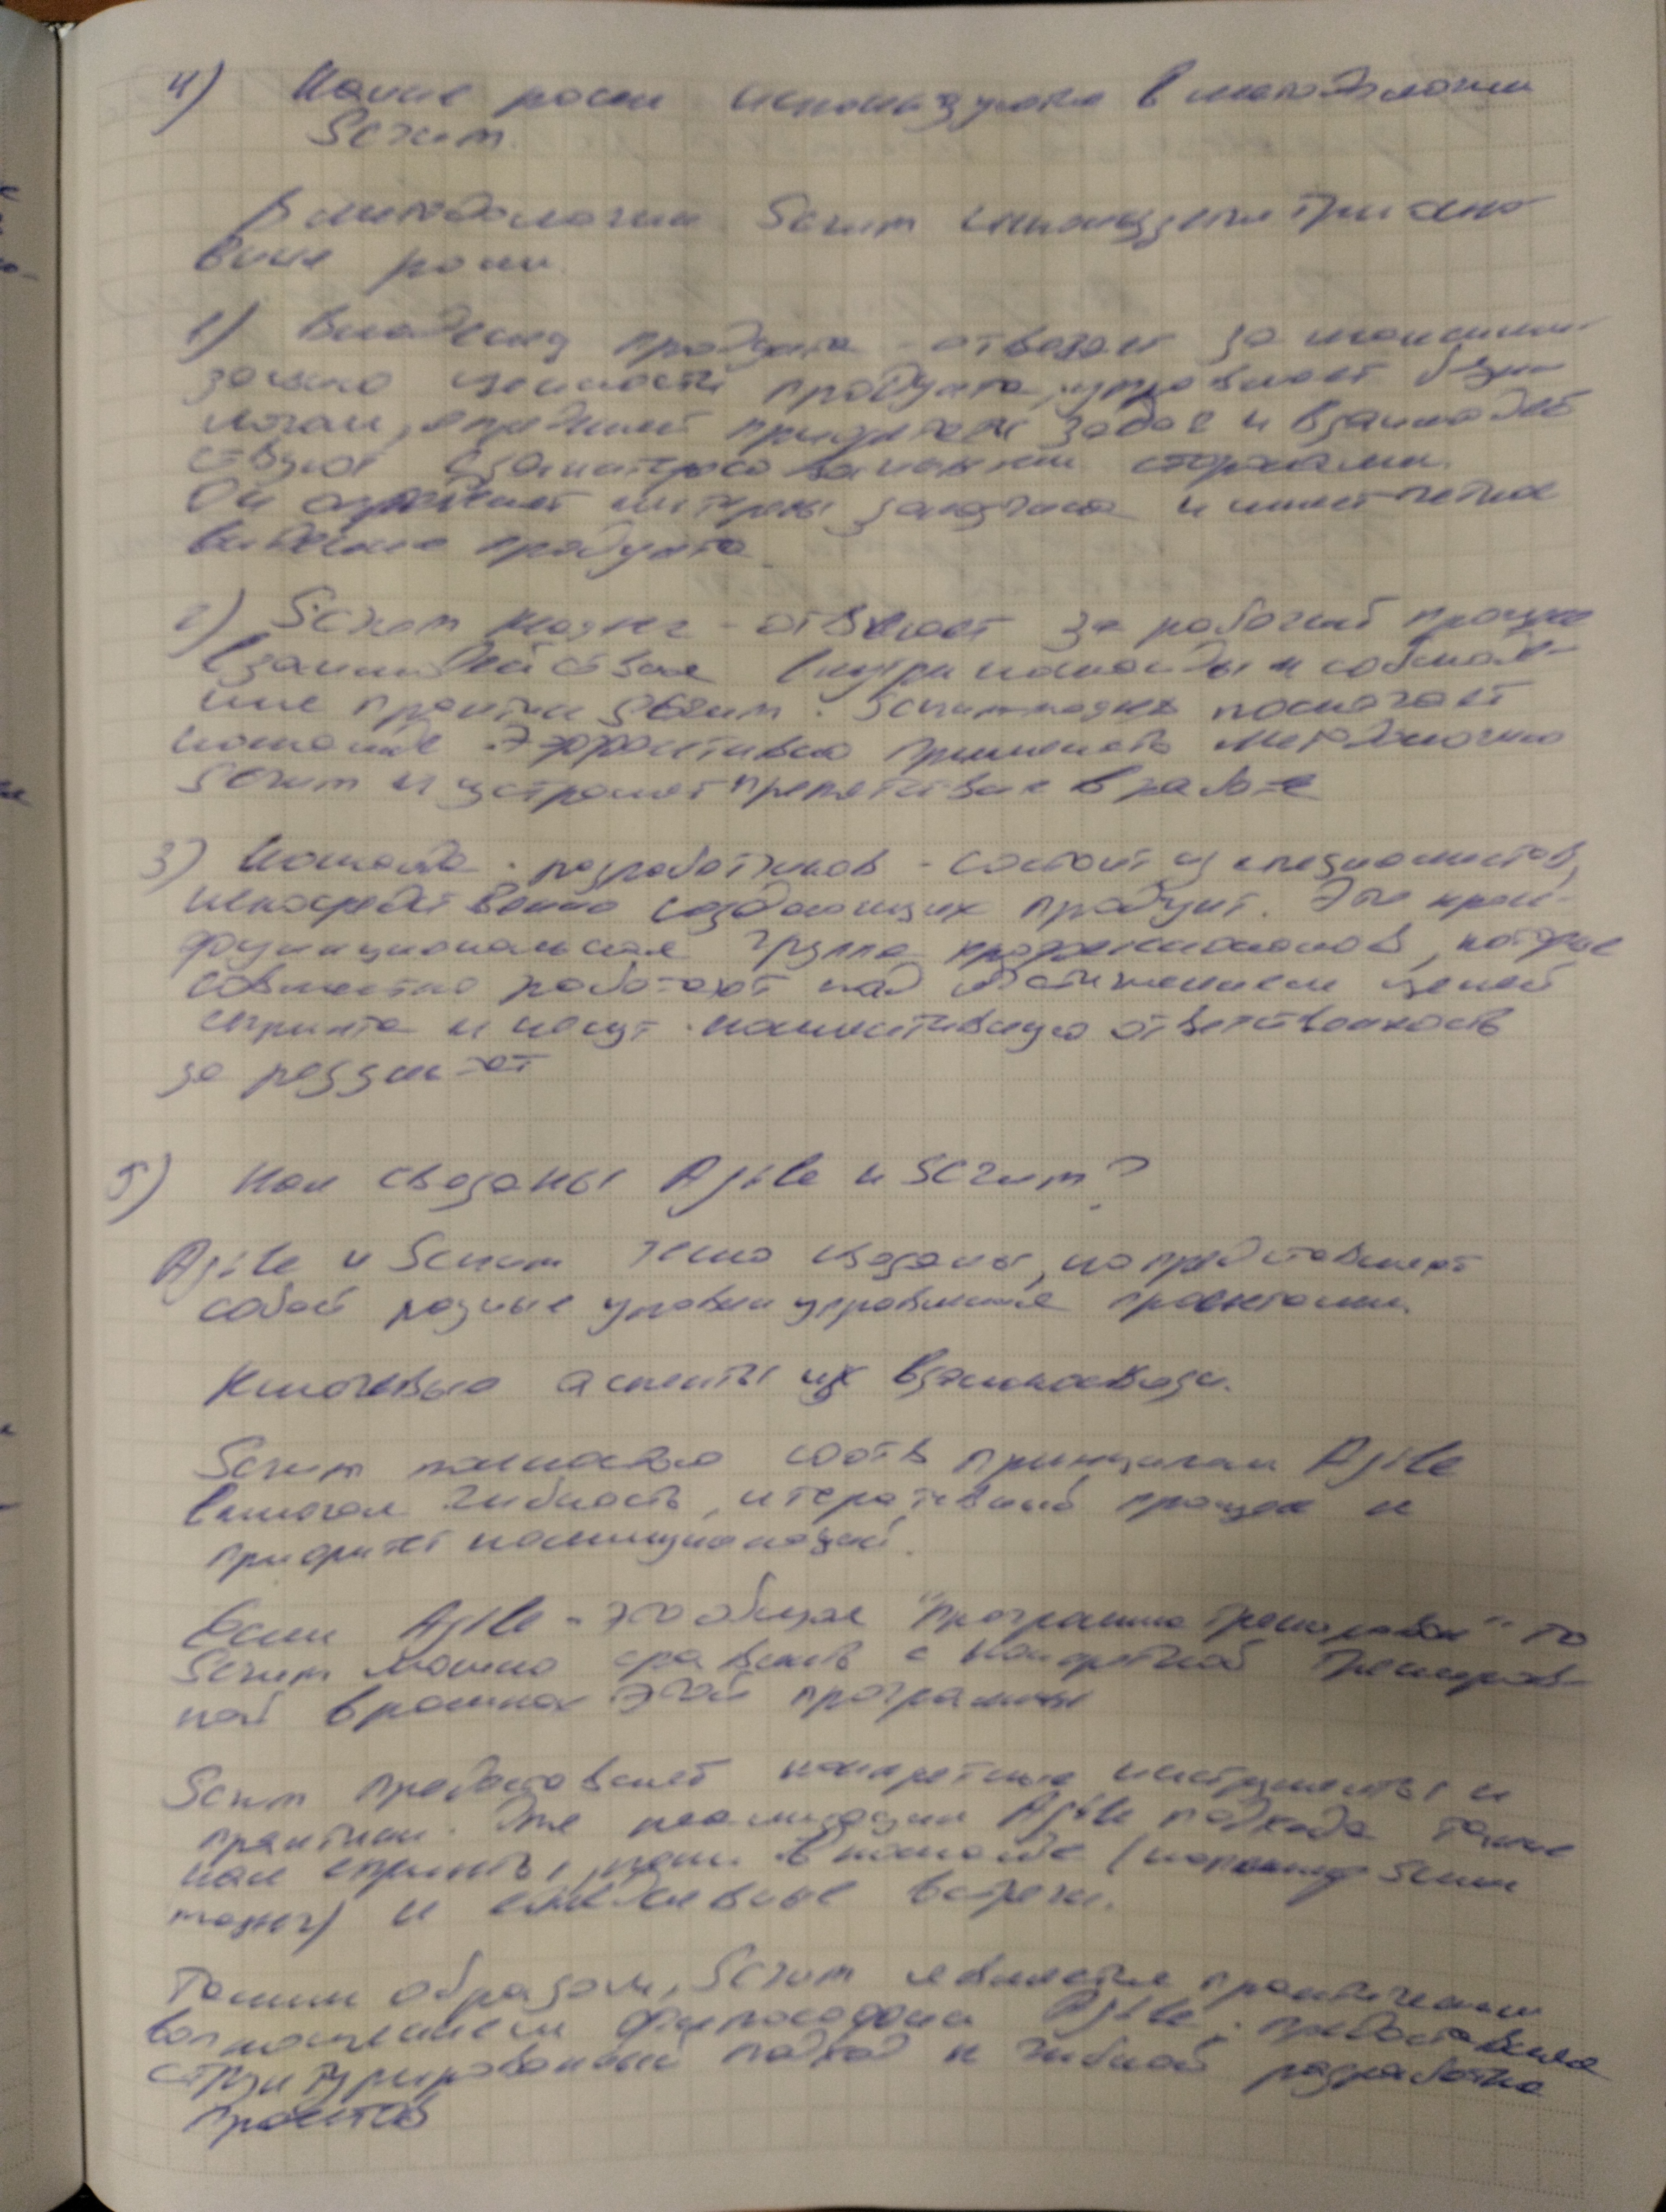 4) Какие роли используются в методологии
Scrum.
В методологии Scrum используется три осно-
вные роли
1) Владелец продукта - отвечает за максими-
зацию ценности продукта, управляет бэк
логом, определяет приоритеты задач и взаимодей
ствует с заинтересованными сторонами.
Он отражает интересы заказчика и имеет четкое
видение продукта
2) Scrum мастер - отвечает за рабочий процесс
взаимодействие внутри команды и соблюде-
ние практик Scrum. Scrum мастер помогает
команде эффективно применять методологию
Scrum и устраняет препятствия в работе
3) Команда разработчиков - состоит из специалистов,
непосредственно создающих продукт. Это кросс-
функциональная группа профессионалов, которые
совместно работают над достижением целей
спринта и несут коллективную ответственность
за результат
5) Как связаны Agile и Scrum?
Agile и Scrum тесно связаны, но представляют
собой разные уровни управления проектами.
Ключевые аспекты их взаимосвязи.
Scrum полностью соотв принципам Agile
включая гибкость, итеративный процесс и
приоритет коммуникаций.
Если Agile - это общая "программа тренировок" то
Scrum можно сравнить с конкретной трениров-
кой в рамках этой программы
Scrum предоставляет конкретные инструменты и
практики для реализации Agile подхода такие
как спринты, роли в команде (например Scrum
мастер) и ежедневные встречи.
Таким образом, Scrum является практическим
воплощением философии Agile, предоставляя
структурированный подход к гибкой разработке
проектов